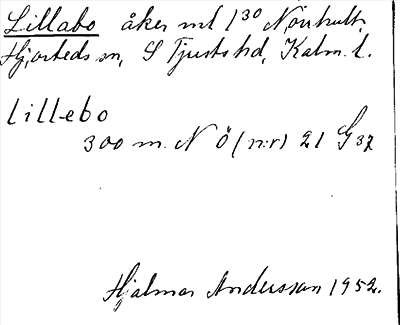 Lillabo åker ml 1³⁰ Nörhult,
Hjorteds sn, S Tjusts hd, Kalm. l.
lillebo
300 m. N Ö (n:r) 21 G 37
Hjalmar Andersson 1952.